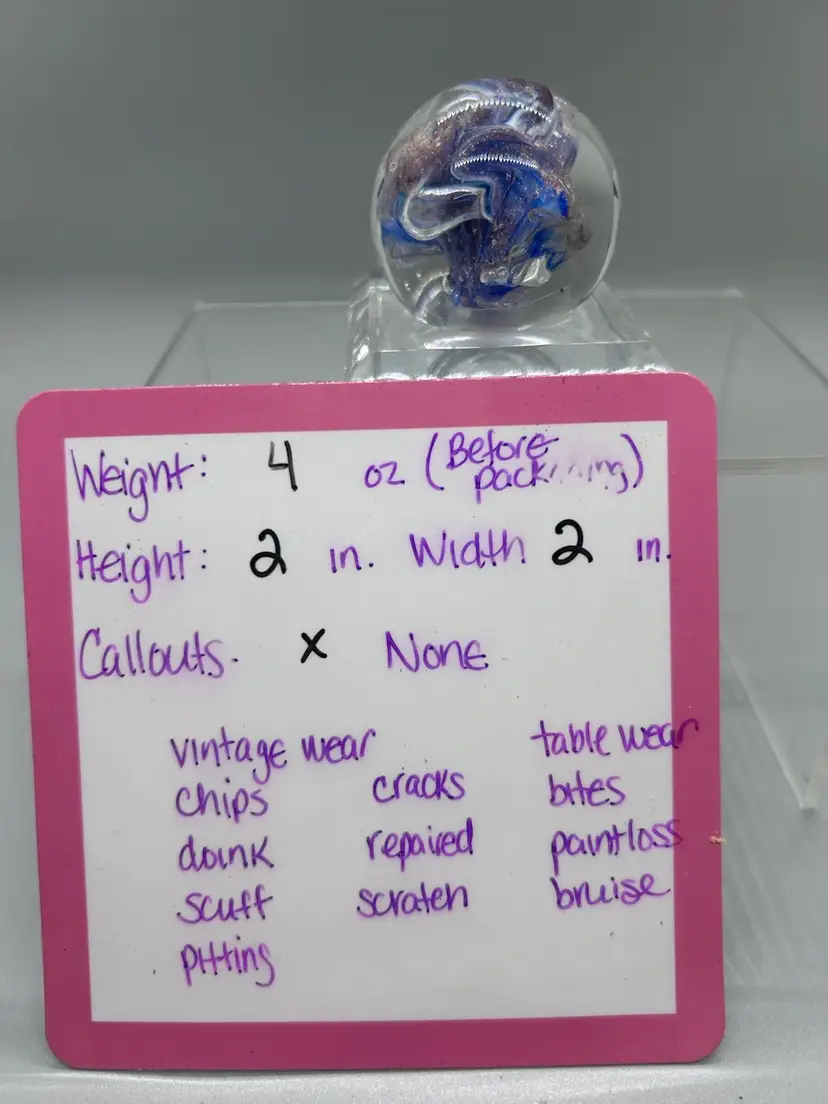 Weight: 4 oz (Before packing)
Height: 2 in. Width 2 in.
Callouts. x None
vintage wear table wear
chips cracks bites
doink repaired paintloss
scuff scratch bruise
pitting